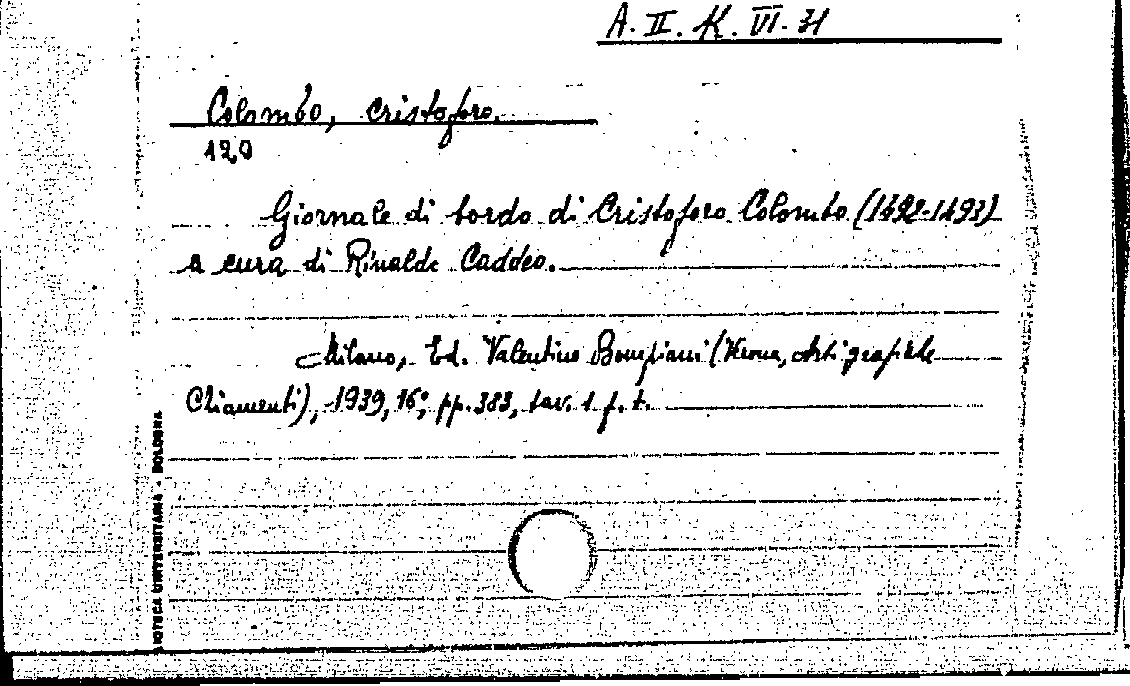 A. II. K. VI. 31
Colombo, Cristoforo.
120
Giornale di bordo di Cristoforo Colombo (1492-1493)
a cura di Rinaldo Caddeo.
Milano, Ed. Valentino Bompiani (Verona, Arti grafiche
Chiamenti), 1939, 16°, pp. 383, tav. 1 f. t.
IOTECA UNIVERSITARIA - BOLOGNA